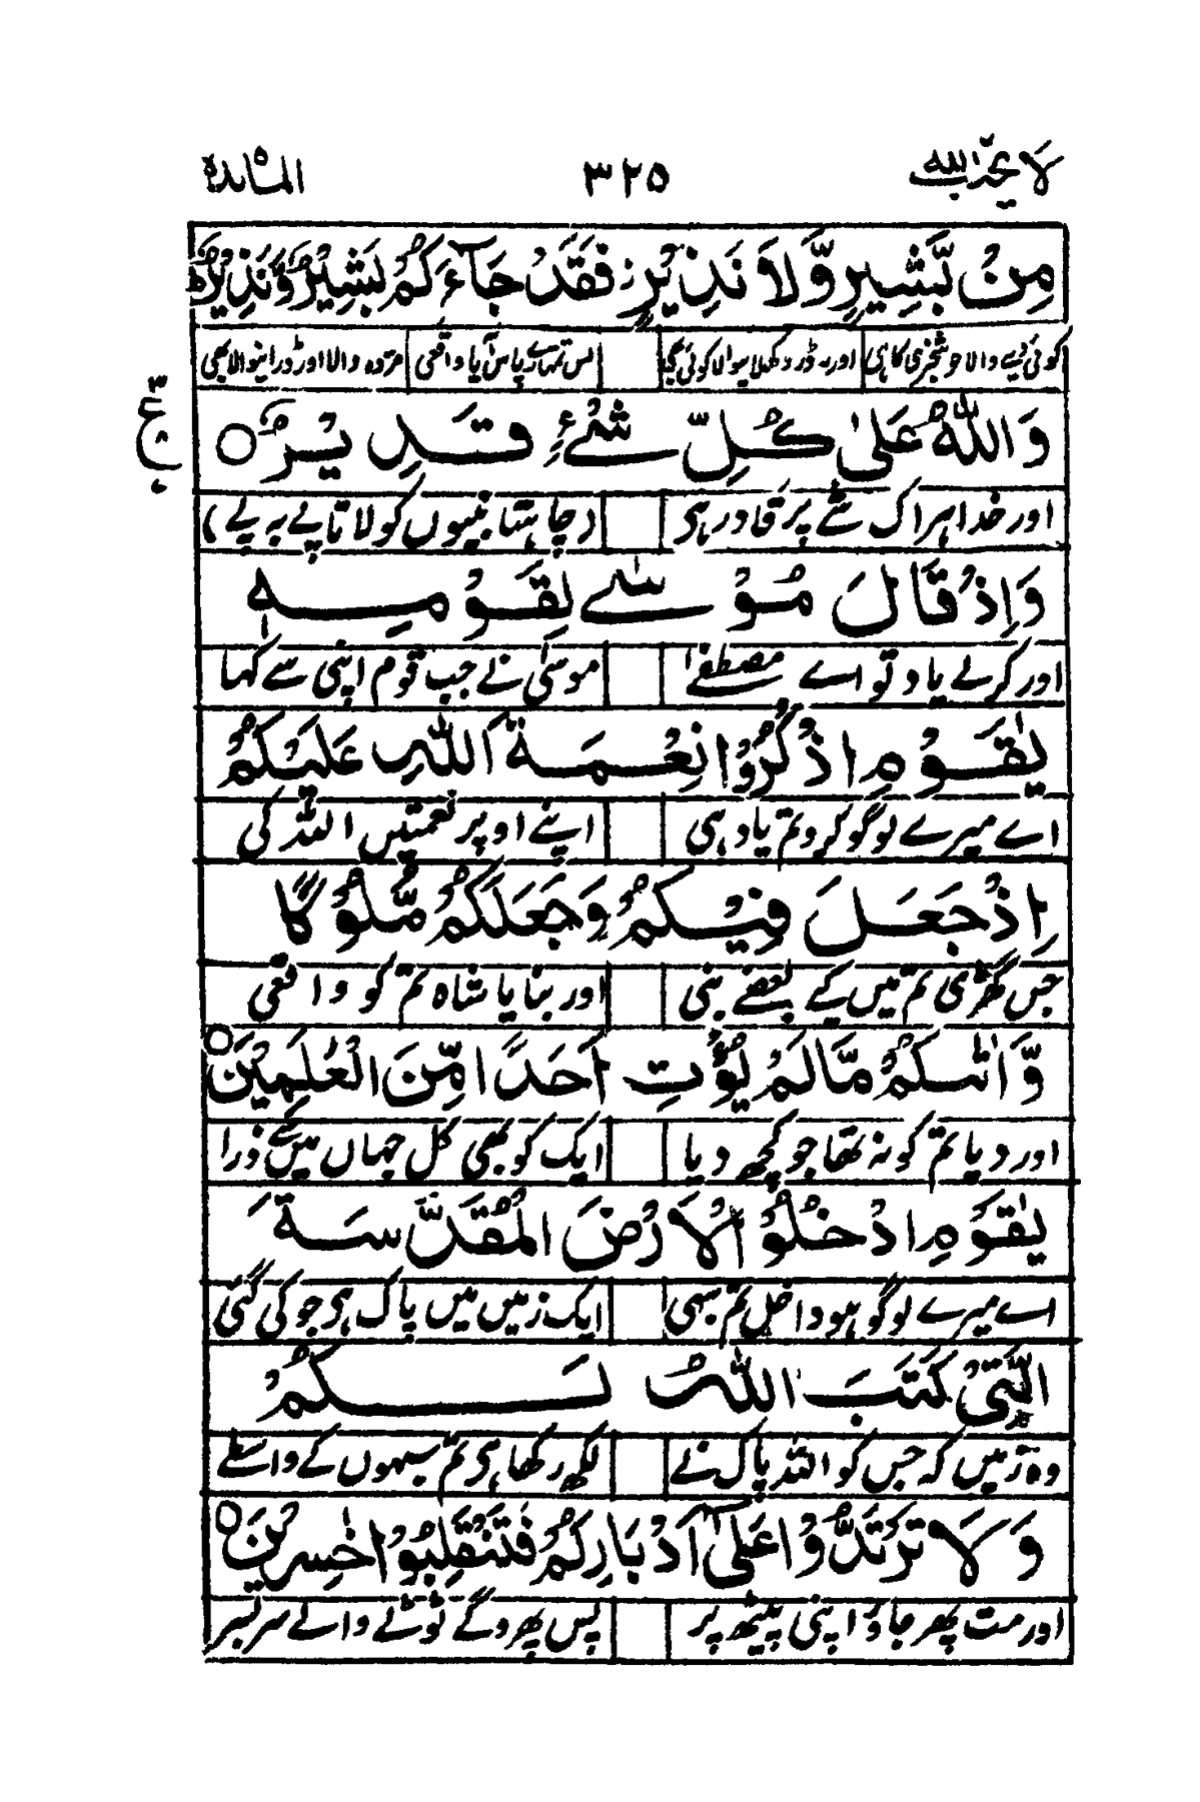 لا یحب الله ۳۲۵ المائدة
مِنْۢ بَّشِيْرٍ وَّلَا نَذِيْرٍ فَقَدْ جَآءَكُمْ بَشِيْرٌ وَّنَذِيْرٌ
کوئی دینے والا خوشخبری کا ہی اور نہ ڈر دکھلانیوالا کوئی بھی بس تمہارے پاس آیا واقعی مژدہ والا اور ڈرانیوالا بھی
وَاللّٰهُ عَلٰى كُلِّ شَيْءٍ قَدِيْرٌ ○
ع
اور خدا ہر اک شئے پر قادر ہی (چاہتا نبیوں کو لاتا پے بہ پے)
وَاِذْ قَالَ مُوْسٰى لِقَوْمِهٖ
اور کر لے یاد تو اے مصطفےٰ موسیٰ نے جب قوم اپنی سے کہا
يٰقَوْمِ اذْكُرُوْا نِعْمَةَ اللّٰهِ عَلَيْكُمْ
اے میرے لوگو کرو تم یاد ہی اپنے اوپر نعمتیں اللہ کی
اِذْ جَعَلَ فِيْكُمْ وَجَعَلَكُمْ مُّلُوْكًا
جس گھڑی تم میں کیے بعضے نبی اور بنایا شاہ تم کو واقعی
وَّاٰتٰىكُمْ مَّا لَمْ يُؤْتِ اَحَدًا مِّنَ الْعٰلَمِيْنَ ○
اور دیا تم کو نہ تھا جو کچھ دیا ایک کو بھی کل جہاں میں سے ذرا
يٰقَوْمِ ادْخُلُوا الْاَرْضَ الْمُقَدَّسَةَ
اے میرے لوگو ہو داخل تم سبھی ایک زمیں میں پاک ہی جو کی گئی
الَّتِيْ كَتَبَ اللّٰهُ لَكُمْ
وہ زمیں کہ جس کو اللہ پاک نے لکھ رکھا ہی تم سبھوں کے واسطے
وَلَا تَرْتَدُّوْا عَلٰٓى اَدْبَارِكُمْ فَتَنْقَلِبُوْا خٰسِرِيْنَ ○
اور مت پھر جاؤ اپنی پیٹھ پر پس پھرو گے ٹوٹے والے سربسر